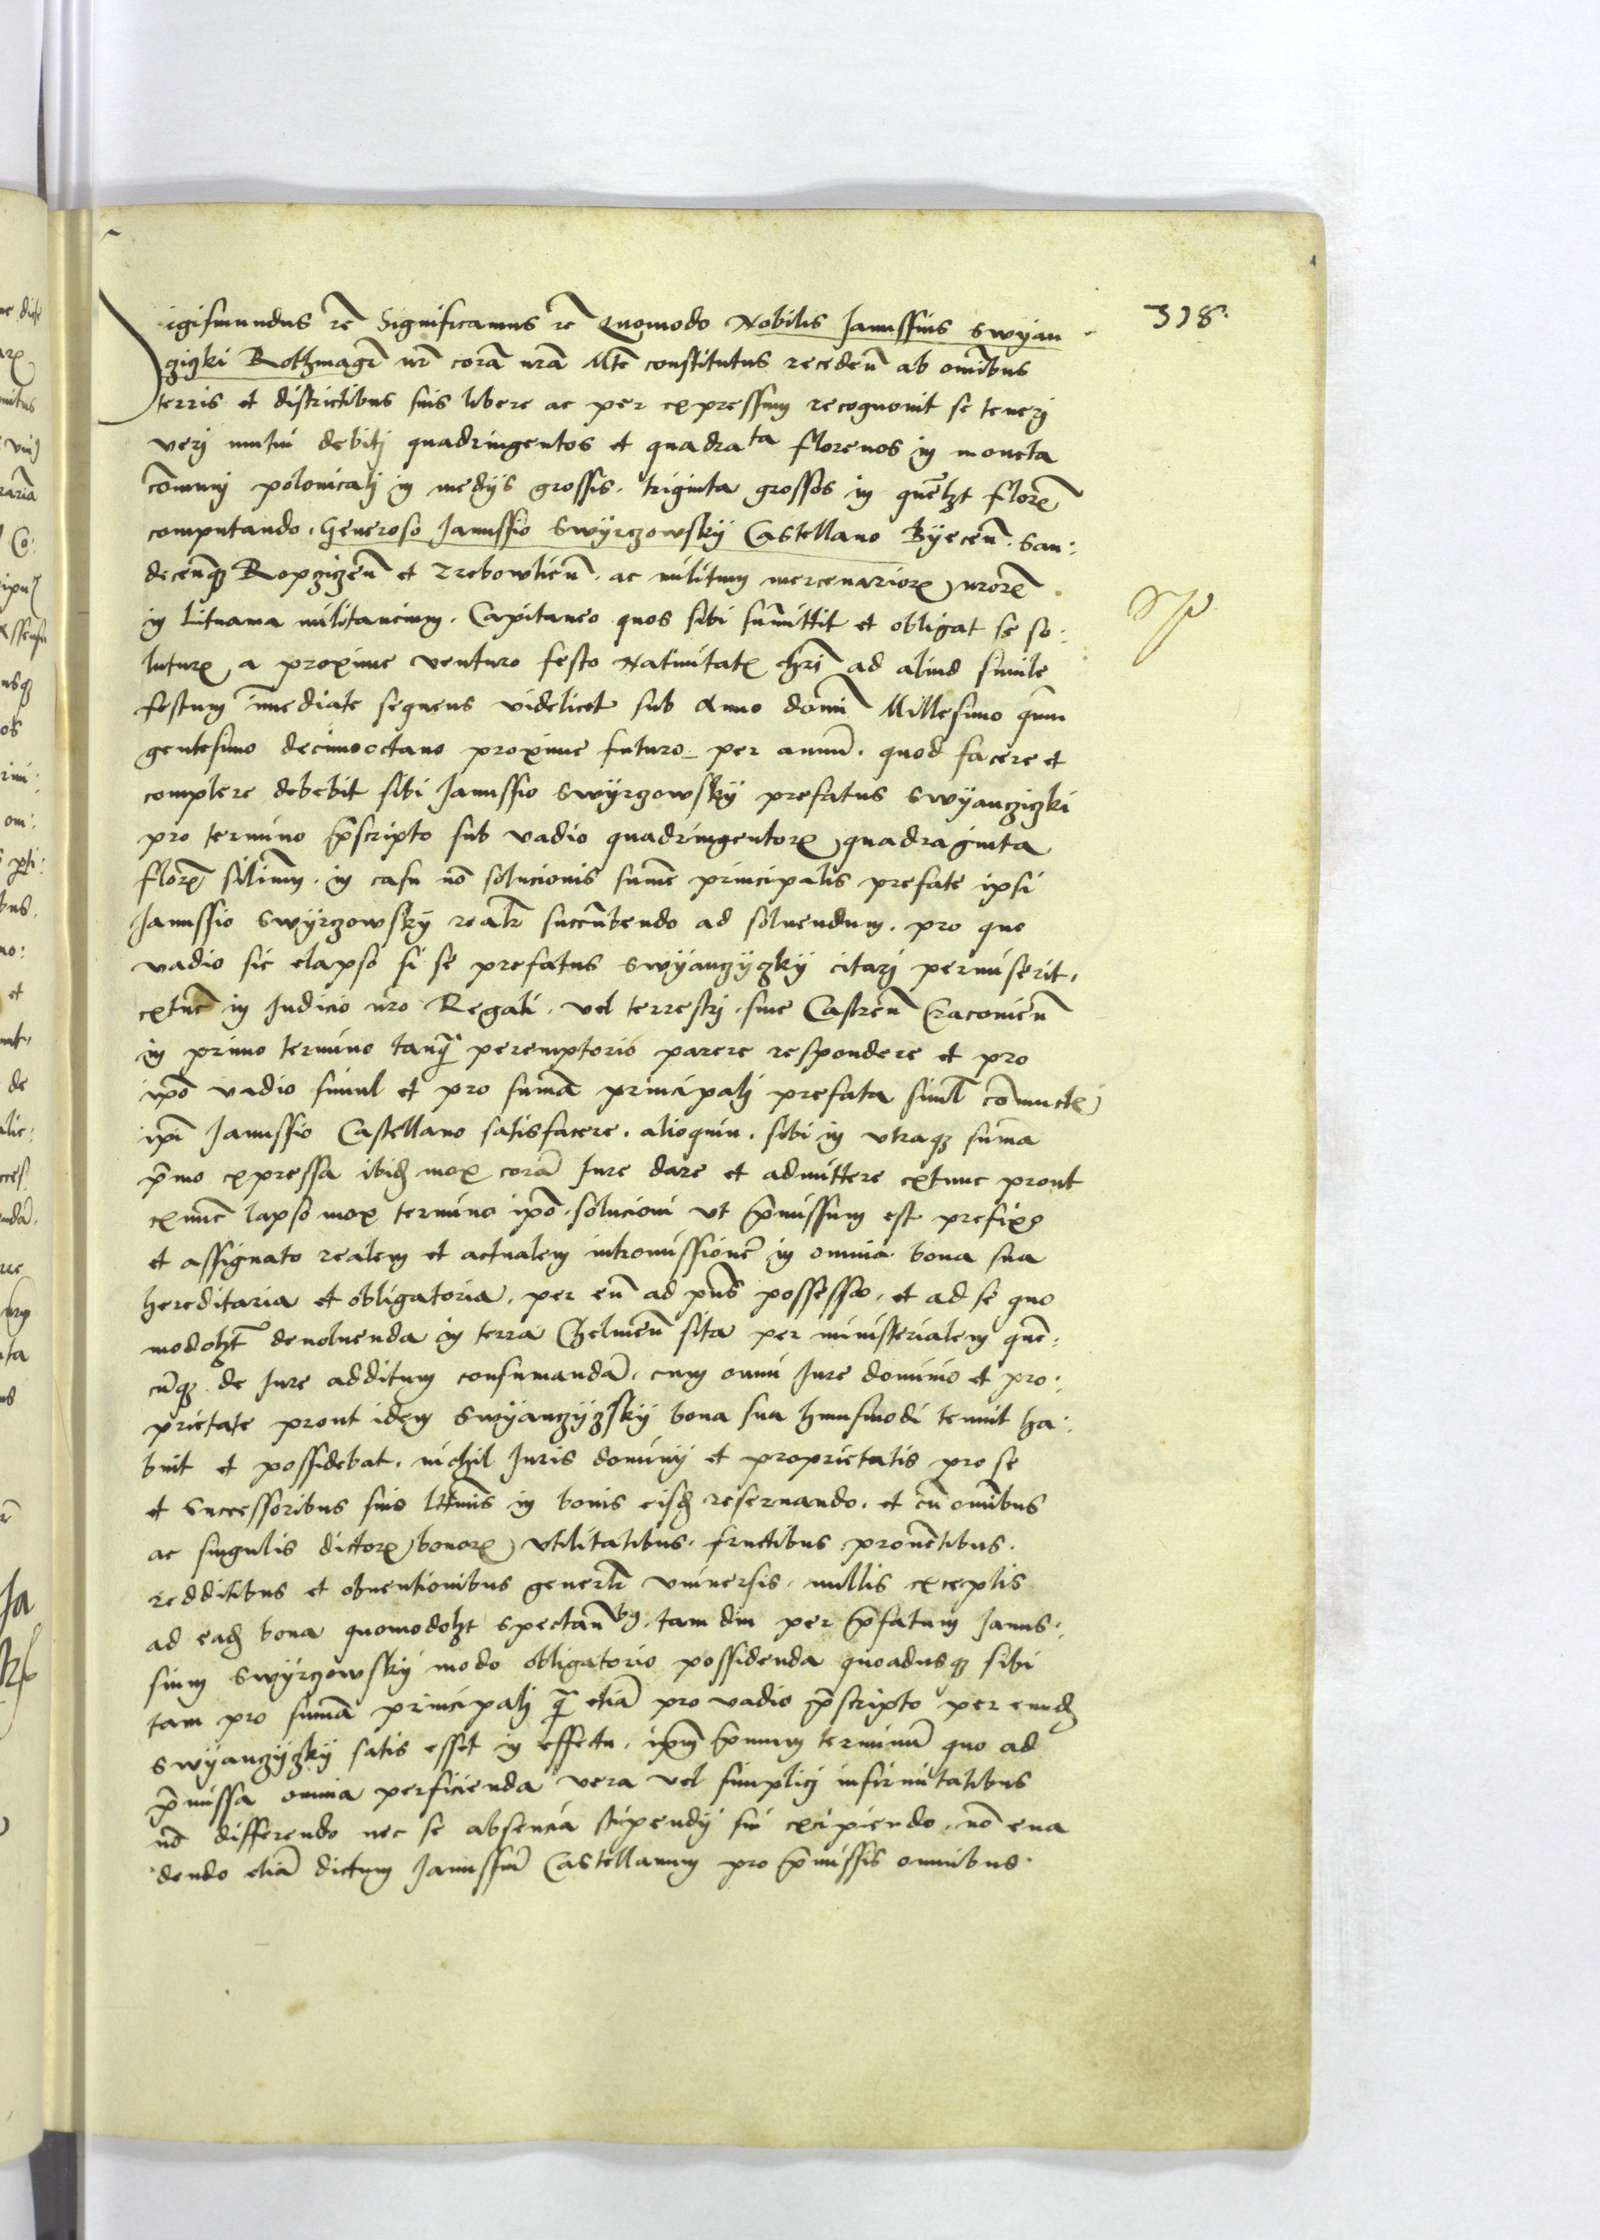 318.
igismundus rc̄ Significamus rc̄ Quomodo Nobilis Janussius Swyan
czizki Rothmagr̄ nr̄ corā nr̄a Mte constitutus recedeñ ab om̄ibus
terris et districtibus suis libere ac per expressum recognovit se tenerj
verj mutui debitj quadringentos et quadrata florenos in moneta
com̄unj polonicalj in medijs grossis. triginta grossos in quēlzt florē
computando. Generoso Janussio Swyrczowsky Castellano Byeceñ. San:
deceñqz Ropcziczeñ et Trebowlieñ. ac militum mercenariorꝝ nr̄orꝝ
in Lituania militancium. Capitaneo quos sibi sūmittit et obligat se so:
luturꝝ a proxime venturo festo Natiuitatꝭ chrī ad aliud simile
festum īmediate sequens videlicet sub Anno dom̄ Millesimo quin
gentesimo decimooctauo proxime futuro per annū. quod facere et
complere debebit sibi Janussio Swyrczowsky prefatus Swyanczizki
pro termino p̄scripto sub vadio quadringentorꝝ quadraginta
florꝝ silīum. in casu nō solucionis sum̄e principalis prefate ipsi
Janussio Swyrczowsky realr̄ succūbendo ad soluendum. pro quo
vadio sic elapso si se prefatus Swyanczyzky citarj permiserit.
extūc in Iudicio nr̄o Regali. vel terrestrj siue Castreñ Cracovieñ
in primo termino tanq̄ peremptorio parere respondere et pro
ip̄o vadio simul et pro sum̄a principalj prefata siml̄ cōmuctꝭ
ip̄i Janussio Castellano satisfacere. alioquin. sibi in vtraqz sum̄a
p̄mo expressa ibidꝫ mox corā Iure dare et admittere extunc prout
exnūc lapso mox termino ip̄o. solucioni vt p̄missum est prefixo
et assignato realem et actualem intromissionē in omnia bona sua
hereditaria et obligatoria. per eū ad p̄ns possessa. et ad se quo
modolzt deuoluenda in terra Chelmeñ sita per ministerialem quē:
cūqz de Iure additum consumandā. cum omni Iure dominio et pro:
prietate prout idem Swyanczyzsky bona sua hmusmodi tenuit ha:
buit et possidebat. nichil Iuris dominij et proprietatis pro se
et successoribus suis lr̄timis in bonis eisdꝫ reseruando. et cū om̄ibus
ac singulis dictorꝝ bonorꝝ vtilitatibus. fructibus. prouētibus.
redditibus et obuentionibus generlr̄ vniuersis. nullis exceptis
ad eadꝫ bona quomodolzt spectañbꝫ. tam diu per p̄fatum Janus:
sium Swyrczowsky modo obligatorio possidenda quoadusqz sibi
tam pro sum̄a principalj q̄ etiā pro vadio p̄scripto per eundꝫ
Swyanczyzky satis esset in effectu. ip̄m p̄mum terminū quo ad
p̄missa omnia perficienda vera vel simplicj infirmitatibus
nō differendo nec se absencia stipendij sui excipiendo. nō eua
dendo etiā dictum Janussiū Castellanum pro p̄missis omnibus.